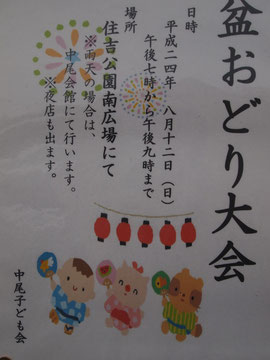 盆おどり大会
日時
平成二四年 八月十二日（日）
午後七時から午後九時まで
場所
住吉公園南広場にて
※雨天の場合は、
中尾会館にて行います。
※夜店も出ます。
中尾子ども会